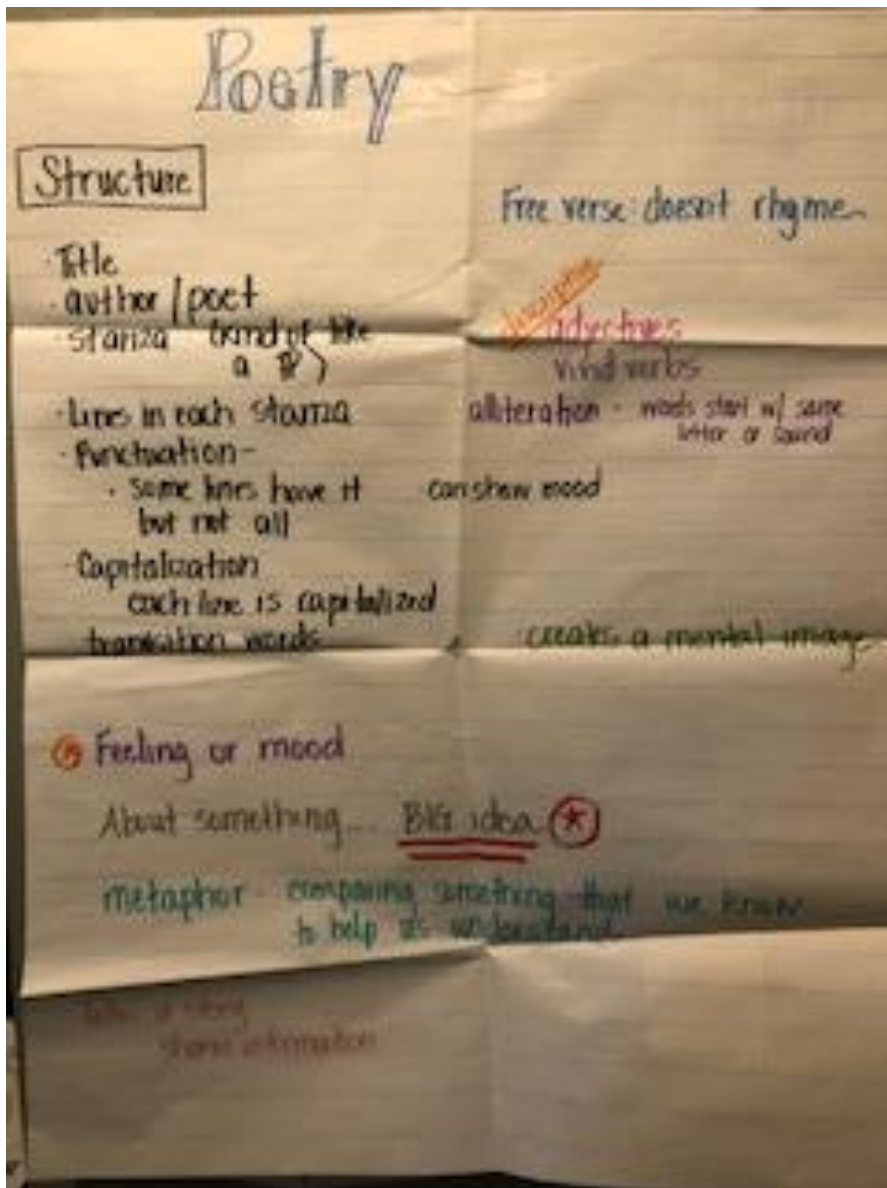 Poetry
Structure
Free verse: doesn't rhyme
· Title
· author / poet
· stanza (kind of like
a ¶)
adjectives
vivid verbs
· Lines in each stanza
alliteration - words start w/ same
letter or sound
· Punctuation -
· some lines have it
but not all
can show mood
· Capitalization
each line is capitalized
transition words
· creates a mental image
Feeling or mood
About something... BIG idea *
metaphor - comparing something that we know
to help us understand
a story
share information